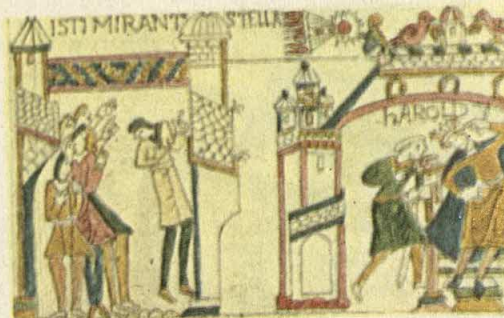 ISTI MIRANT STELLA
HAROL